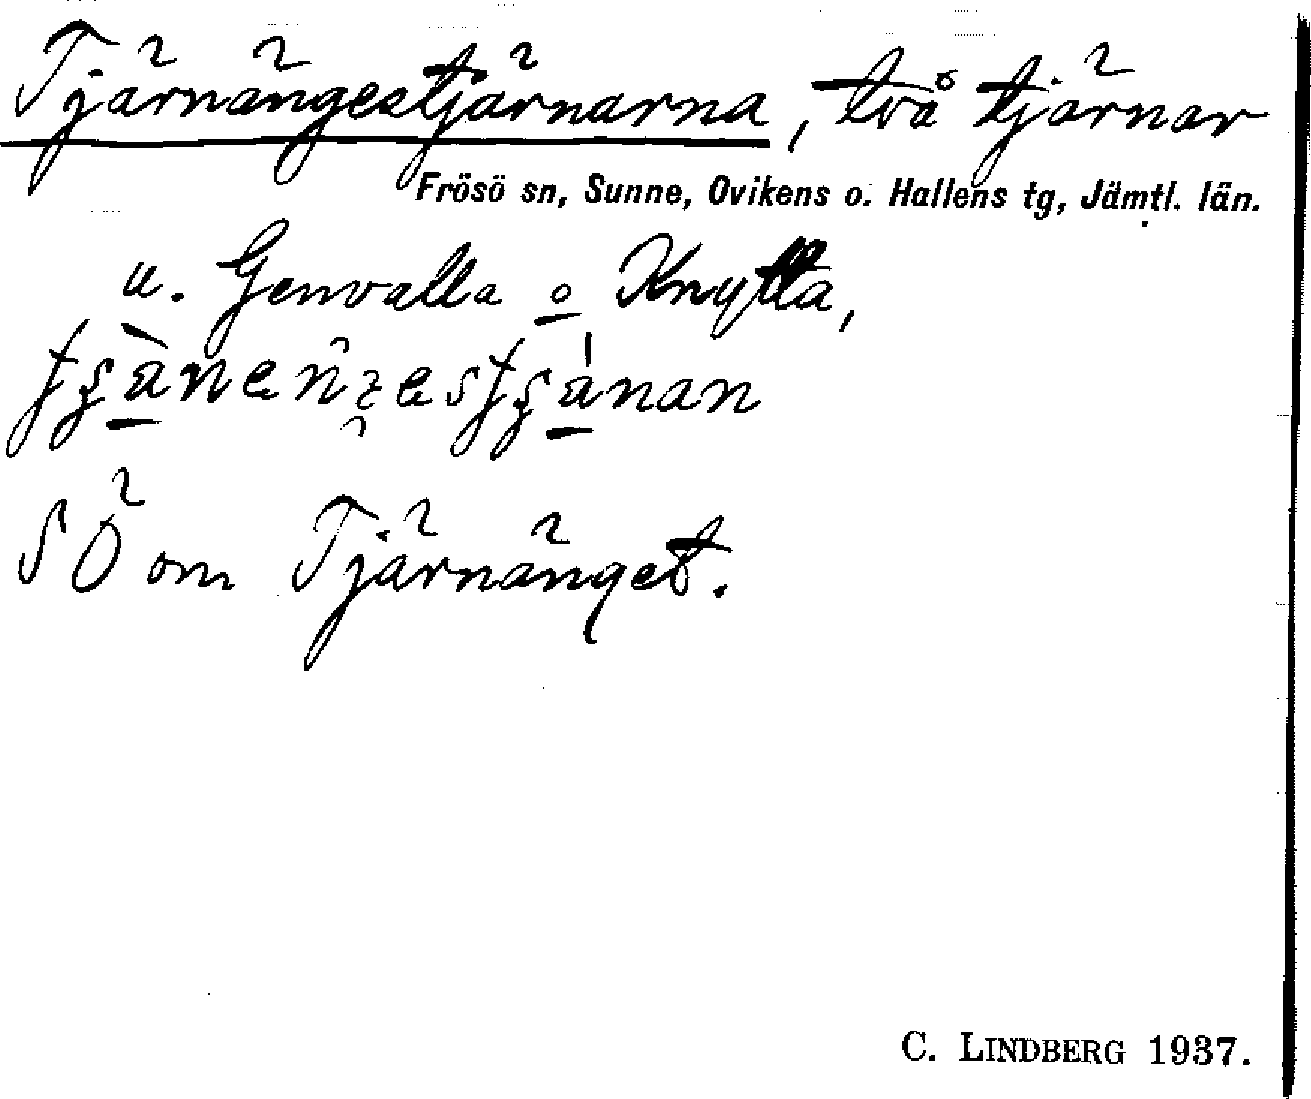 Tjärnängestjärnarna, två tjärnar
Frösö sn, Sunne, Ovikens o. Hallens tg, Jämtl. län.
u. Genvalla o Knytta,
SÖ om Tjärnänget.
C. LINDBERG 1937.